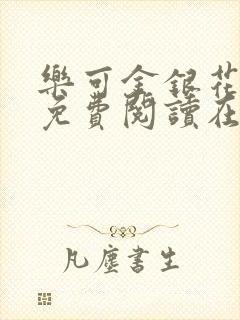 樂可金銀花
免費閱讀在
凡塵書生